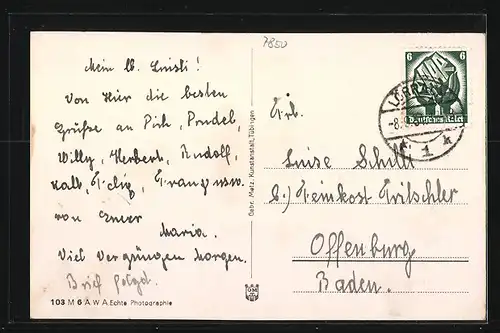 7850
Mein lb. Luisli!
Von Hier die besten
Grüße an Dich, Prudel,
Willy, Herbert, Rudolf,
Felix, Franz usw.
von Euer
Maria.
Viel Vergnügen Morgen.
Brief folgt.
103 M 6 A W A. Echte Photographie
Gebr. Metz, Kunstanstalt, Tübingen
6 6
Deutsches Reich
LÖRRACH
1
Frl.
Luise Schutt
b/ Feinkost Fritschler
Offenburg
Baden.